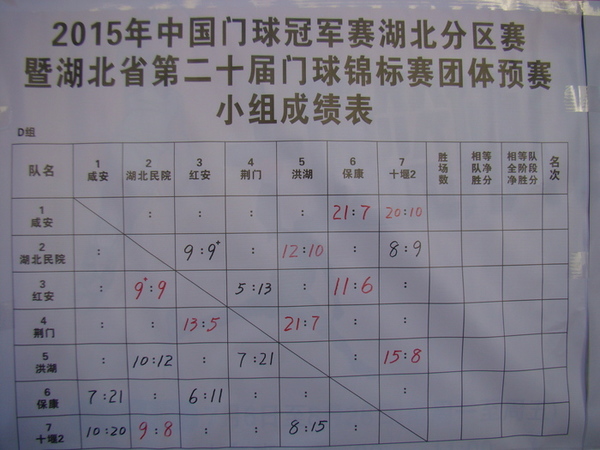 2015年中国门球冠军赛湖北分区赛
暨湖北省第二十届门球锦标赛团体预赛
小组成绩表
D组
队名 1 咸安 2 湖北民院 3 红安 4 荆门 5 洪湖 6 保康 7 十堰2 胜场数 相等队净胜分 相等队全阶段净胜分 名次
1 咸安 : : : : 21:7 20:10
2 湖北民院 : 9:9+ : 12:10 : 8:9
3 红安 : 9+:9 5:13 : 11:6 :
4 荆门 : : 13:5 21:7 : :
5 洪湖 : 10:12 : 7:21 : 15:8
6 保康 7:21 : 6:11 : : :
7 十堰2 10:20 9:8 : : 8:15 :